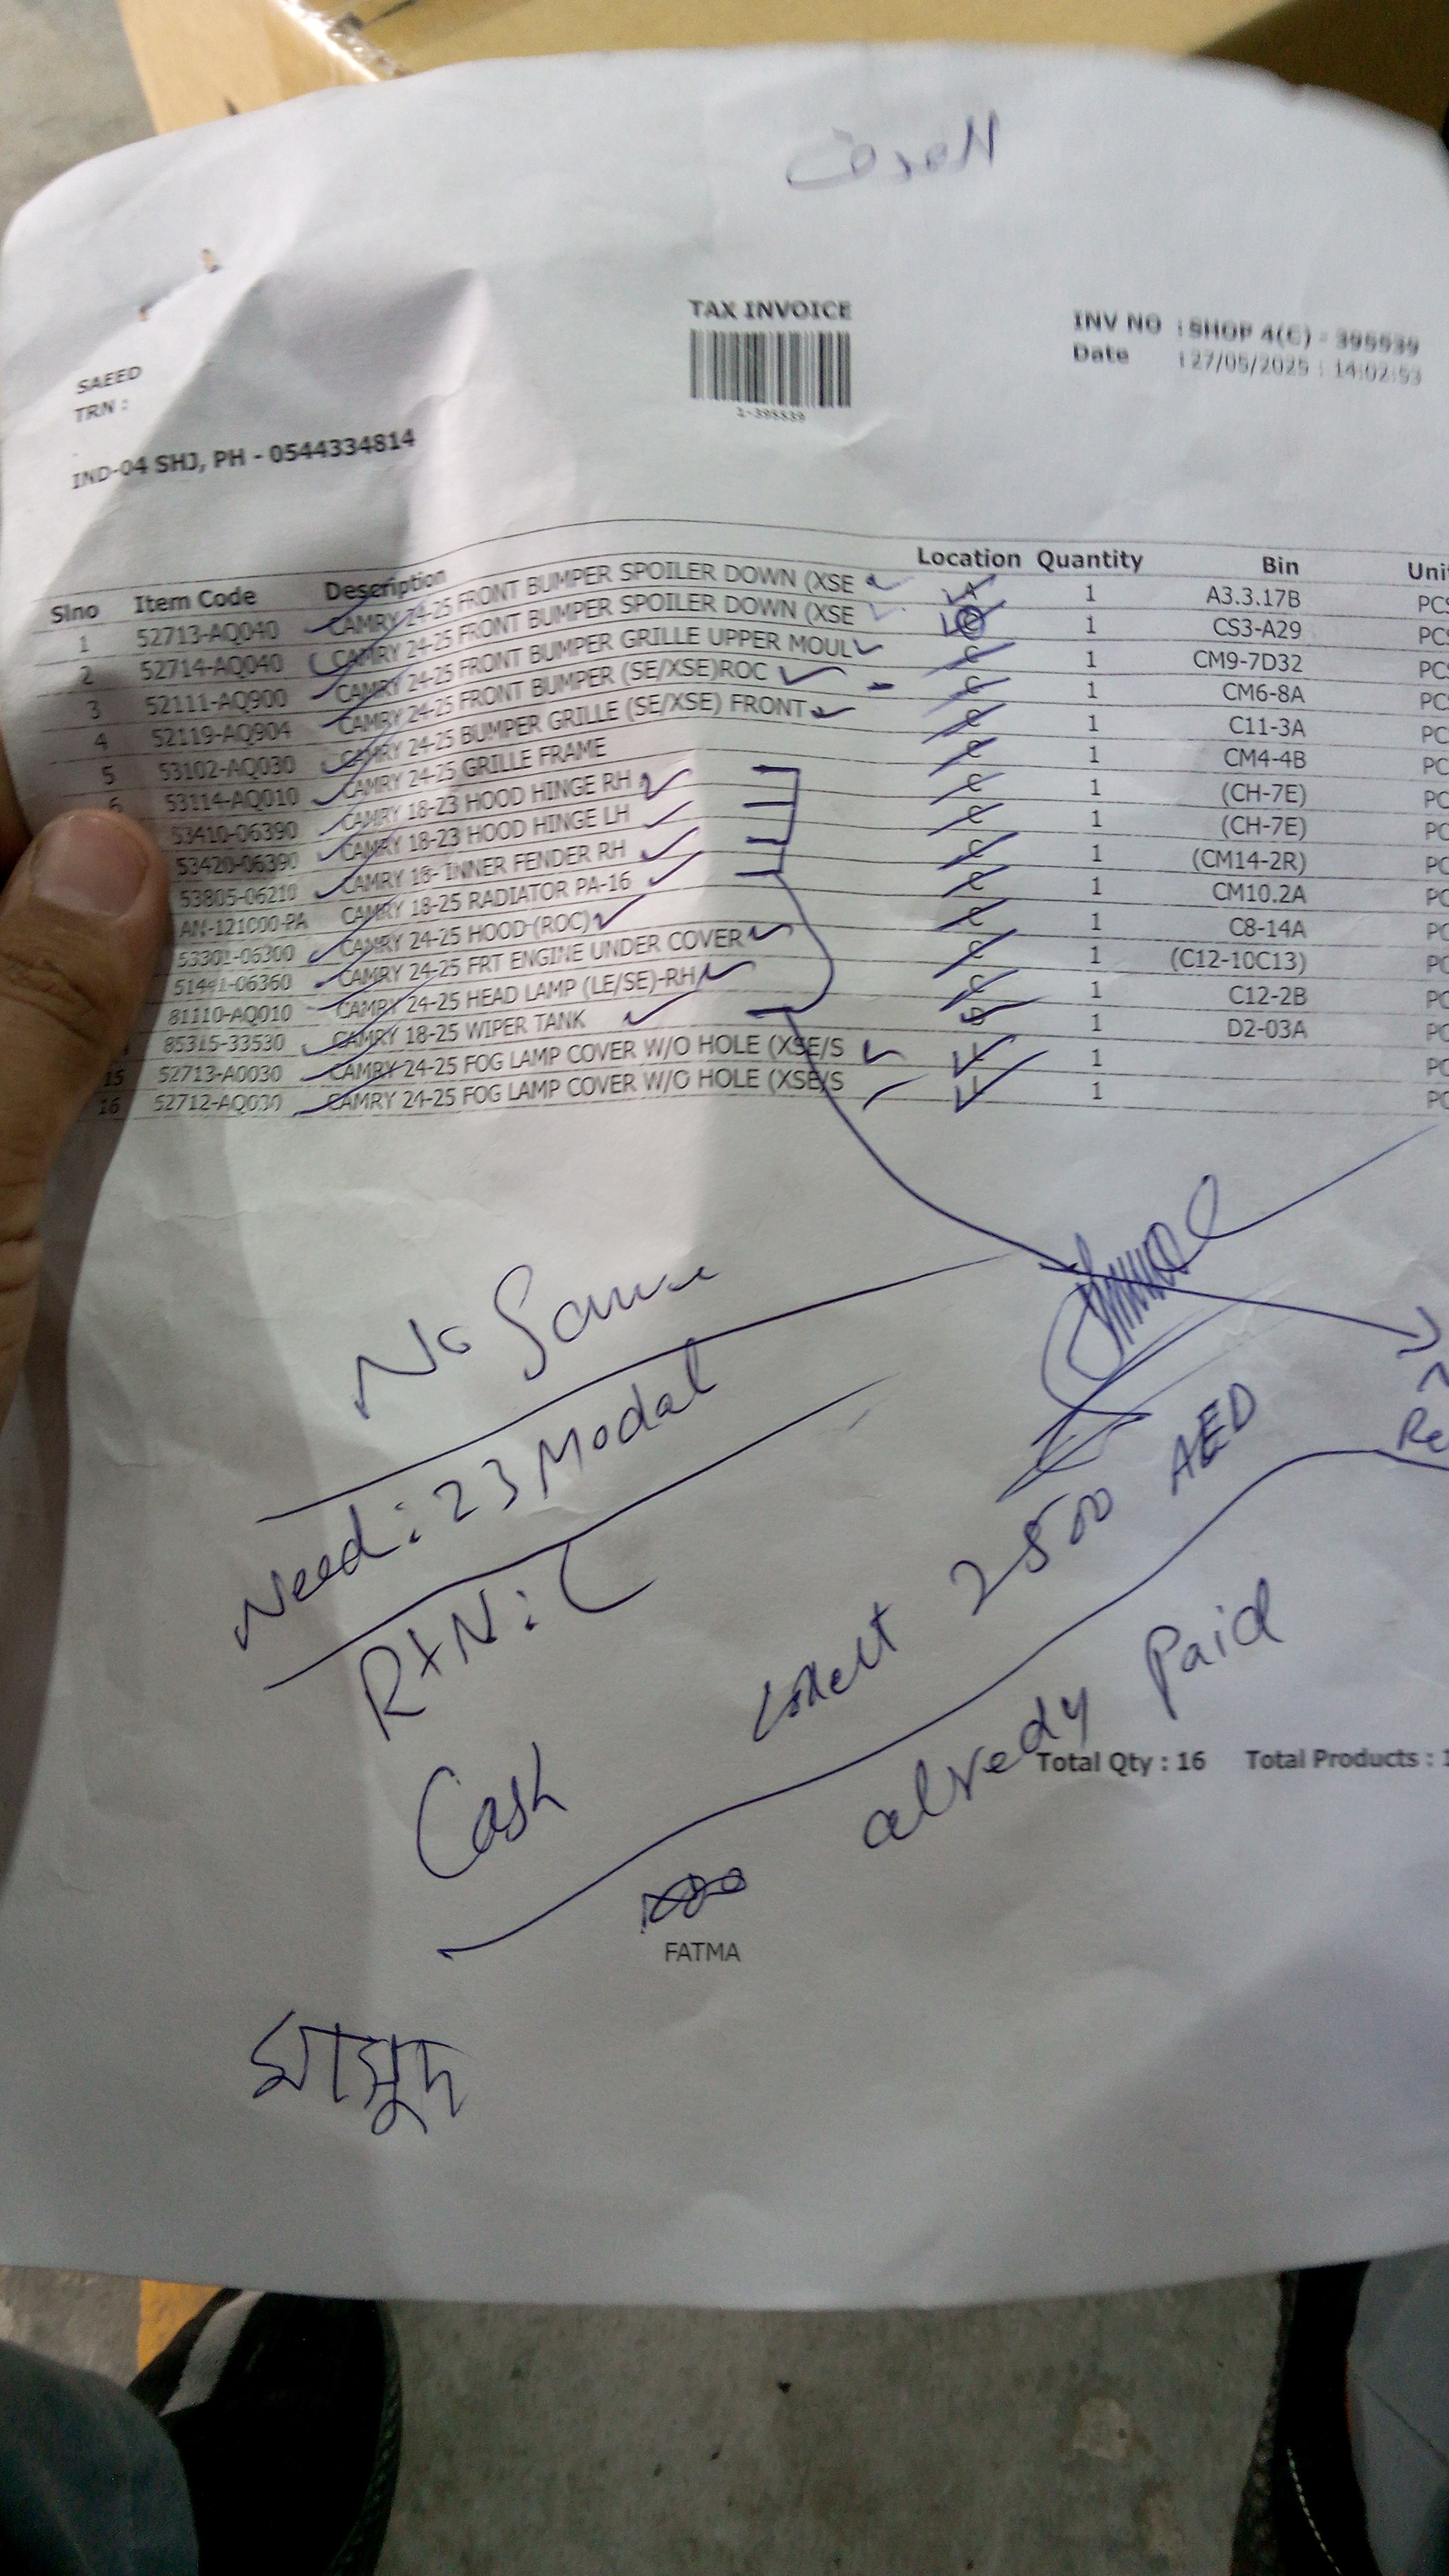 TAX INVOICE
1-395539
INV NO : SHOP 4(C) - 395539
Date : 27/05/2025 : 14:02:53
SAEED
TRN :
IND-04 SHJ, PH - 0544334814
Slno Item Code Description Location Quantity Bin
1 52713-AQ040 CAMRY 24-25 FRONT BUMPER SPOILER DOWN (XSE A 1 A3.3.17B
2 52714-AQ040 CAMRY 24-25 FRONT BUMPER SPOILER DOWN (XSE C 1 CS3-A29
3 52111-AQ900 CAMRY 24-25 FRONT BUMPER GRILLE UPPER MOUL C 1 CM9-7D32
4 52119-AQ904 CAMRY 24-25 FRONT BUMPER (SE/XSE)ROC C 1 CM6-8A
5 53102-AQ030 CAMRY 24-25 BUMPER GRILLE (SE/XSE) FRONT C 1 C11-3A
6 53114-AQ010 CAMRY 24-25 GRILLE FRAME C 1 CM4-4B
53410-06390 CAMRY 18-23 HOOD HINGE RH C 1 (CH-7E)
53420-06390 CAMRY 18-23 HOOD HINGE LH C 1 (CH-7E)
53805-06210 CAMRY 18- INNER FENDER RH C 1 (CM14-2R)
AN-121000-PA CAMRY 18-25 RADIATOR PA-16 C 1 CM10.2A
53301-06300 CAMRY 24-25 HOOD-(ROC) C 1 C8-14A
51441-06360 CAMRY 24-25 FRT ENGINE UNDER COVER C 1 (C12-10C13)
81110-AQ010 CAMRY 24-25 HEAD LAMP (LE/SE)-RH C 1 C12-2B
85315-33530 CAMRY 18-25 WIPER TANK D 1 D2-03A
15 52713-A0030 CAMRY 24-25 FOG LAMP COVER W/O HOLE (XSE/S 1
16 52712-AQ030 CAMRY 24-25 FOG LAMP COVER W/O HOLE (XSE/S 1
No Same
Need: 23 Modal
R+N:
2500 AED
Cash
alredy Paid
Total Qty : 16 Total Products :
FATMA
মাসুদ